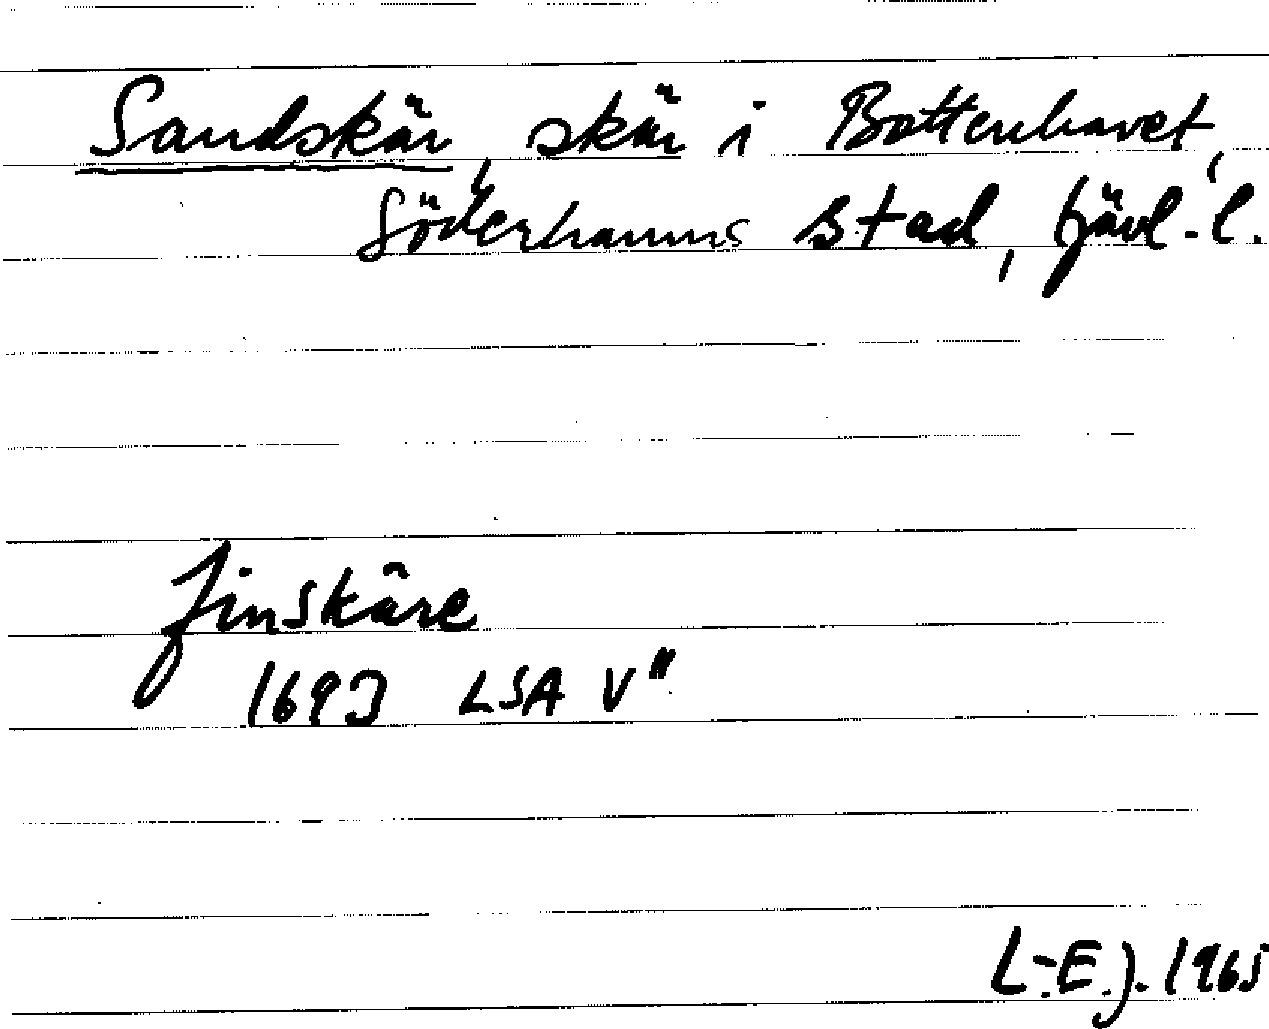 Sandskär, skär i Bottenhavet,
Söderhamns stad, Gävl.l.
Finskäre
1693 LSA V"
L-E.J. 1965